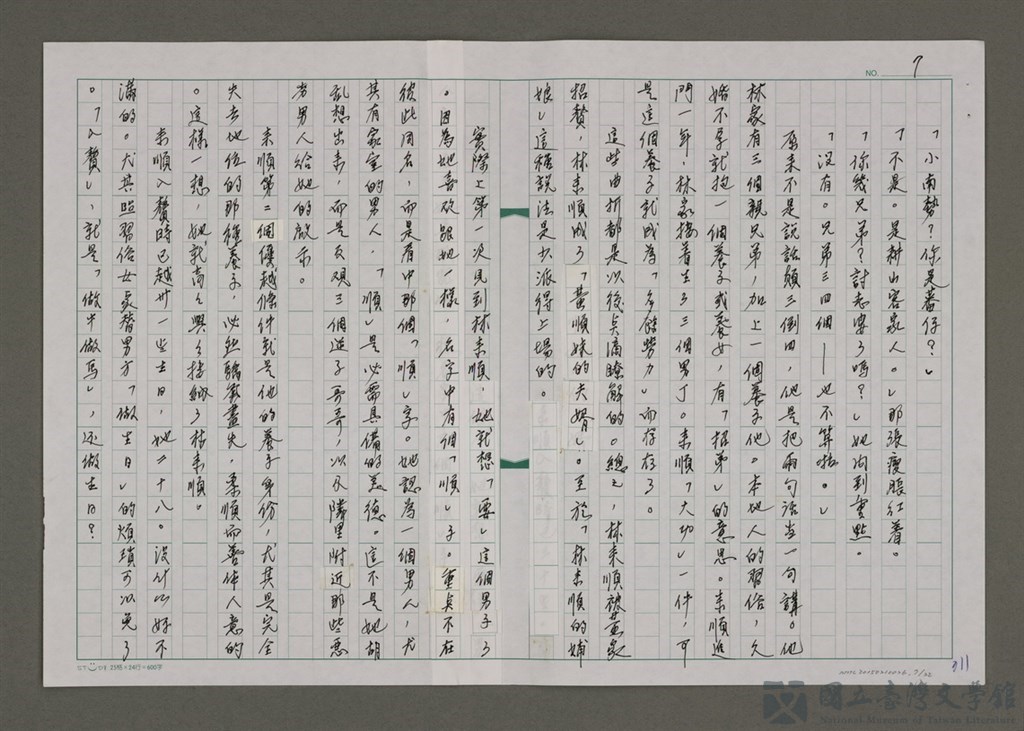 NO. 7
「小南勢?你是蕃仔?」
「不是。是耕山客家人。」那張瘦脹紅着。
「你幾兄弟?討老婆了嗎?」她詢到重點。
「沒有。兄弟三四個——也不算啦。」
原來不是說話顛三倒四,他是把兩句話當一句講。他
林家有三個親兄弟,加上一個養子他。本地人的習俗,久
婚不孕就抱一個養子或養女,有「招弟」的意思。來順進
門一年,林家接着生了三個男丁。來順「大功」一件,可
是這個養子就成為「多餘勞力」而存在了。
這些曲折都是以後貞滿瞭解的。總之,林來順被黃家
招贅,林來順成了「黃順妹的夫婿」。至於「林來順的媳
娘」這種說法是少派得上場的。
實際上第一次見到林來順,她就想「要」這個男子了
。因為她喜歡跟她一樣,名字中有個「順」子。重點不在
彼此同名,而是看中那個「順」字。她認為一個男人,尤
其有家室的男人,「順」是必需具備的美德。這不是她胡
亂想出來,而是反觀三個逆子哥哥,以及隣里附近那些惡
劣男人給她的啟示。
來順第二個優越條件就是他的養子身份,尤其是完全
失去地位的那種養子,必然驕氣盡失,柔順而善伴人意的
。這樣一想,她就高高興興接納了林來順。
來順入贅時已越卅一些些日,她二十八。沒什麼好不
滿的。尤其照習俗女家替男方「做生日」的煩瑣可以免了
。「入贅」,就是「做牛做馬」,還做生日?
25格×24行=600字
311
國立臺灣文學館
National Museum of Taiwan Literature